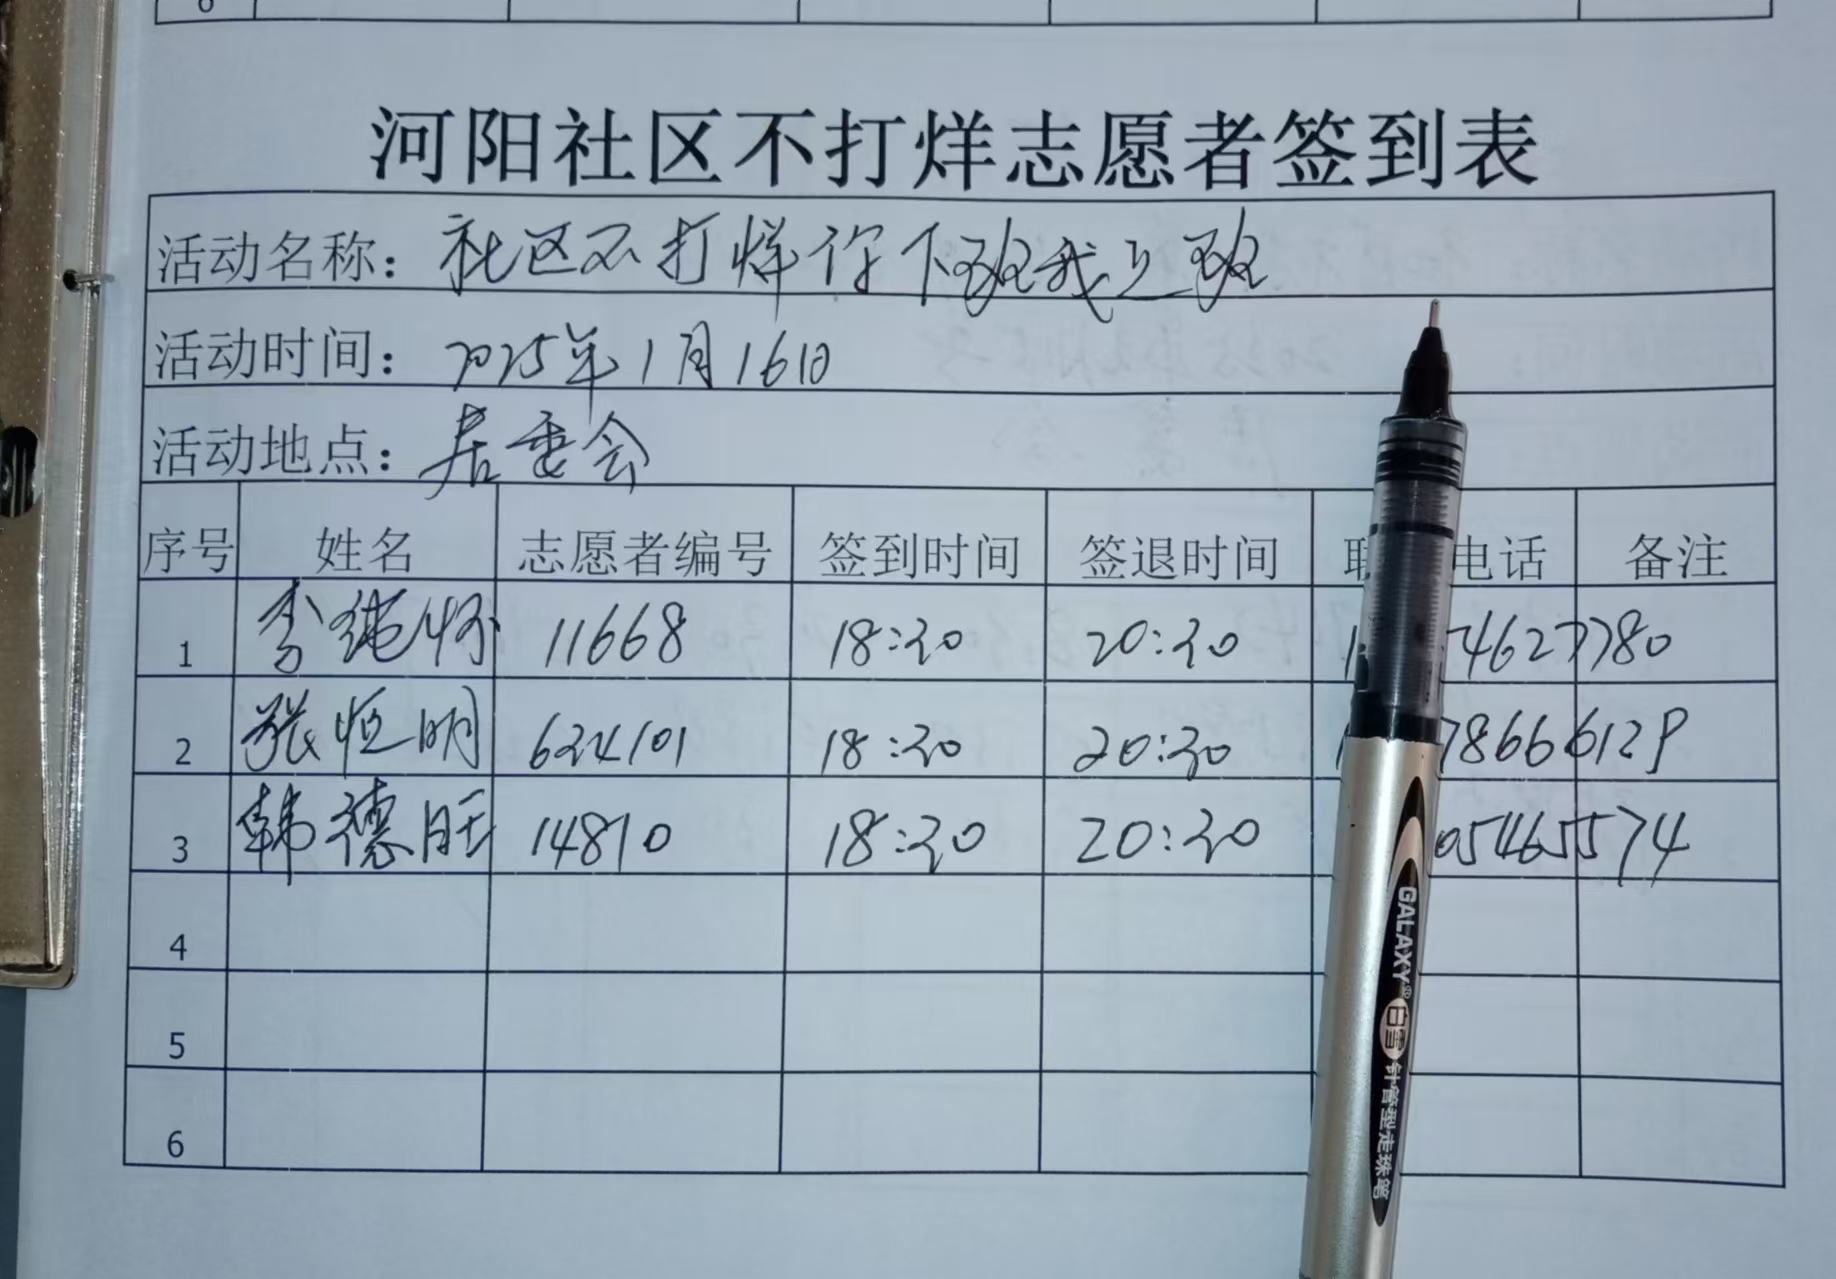 河阳社区不打烊志愿者签到表
活动名称：社区不打烊你下班我上班
活动时间：2025年1月16日
活动地点：居委会
序号 姓名 志愿者编号 签到时间 签退时间 联 电话 备注
1 李纯怀 11668 18:30 20:30 1 74627780
2 张恒明 624101 18:30 20:30 1 78666129
3 韩德旺 14810 18:30 20:30 05465574
4
5
6
GALAXY® 白雪 针管型走珠笔